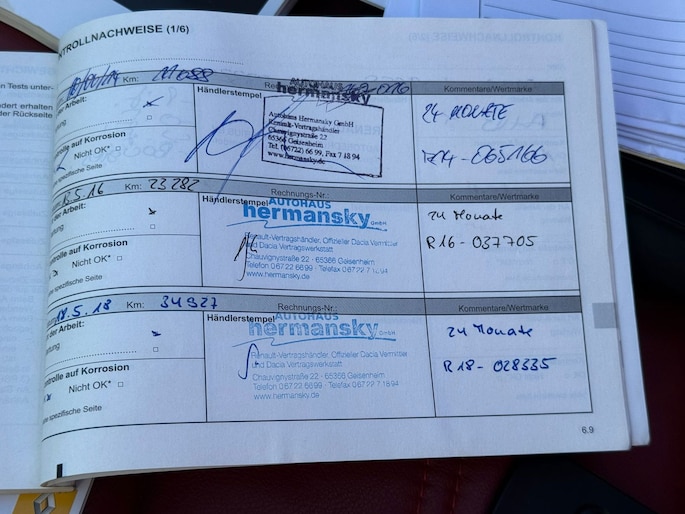 NTROLLNACHWEISE (1/6)
Km: 11088
Händlerstempel
Kommentare/Wertmarke
n Tests unter-
ndert erhalten
r Rückseite
der Arbeit:
24 MONATE
AUTOHAUS
hermansky
Autohaus Hermansky GmbH
Renault-Vertragshändler
Chauvignystraße 22
65366 Geisenheim
Tel. (06722) 66 99, Fax 7 18 94
www.hermansky.de
trolle auf Korrosion
Nicht OK*
spezifische Seite
.5.16 Km: 23 282
Rechnungs-Nr.:
Kommentare/Wertmarke
der Arbeit:
Händlerstempel
AUTOHAUS
hermansky GmbH
Renault-Vertragshändler, Offizieller Dacia Vermittler
und Dacia Vertragswerkstatt
Chauvignystraße 22 - 65366 Geisenheim
Telefon 06722 6699 · Telefax 06722
www.hermansky.de
24 Monate
R16-037705
ntrolle auf Korrosion
Nicht OK*
e spezifische Seite
18.5.18 Km: 34927
Rechnungs-Nr.:
Kommentare/Wertmarke
der Arbeit:
Händlerstempel
AUTOHAUS
hermansky GmbH
Renault-Vertragshändler, Offizieller Dacia Vermittler
und Dacia Vertragswerkstatt
Chauvignystraße 22 - 65366 Geisenheim
Telefon 06722 6699 · Telefax 06722 71894
www.hermansky.de
24 Monate
R18-028335
ntrolle auf Korrosion
Nicht OK*
e spezifische Seite
6.9